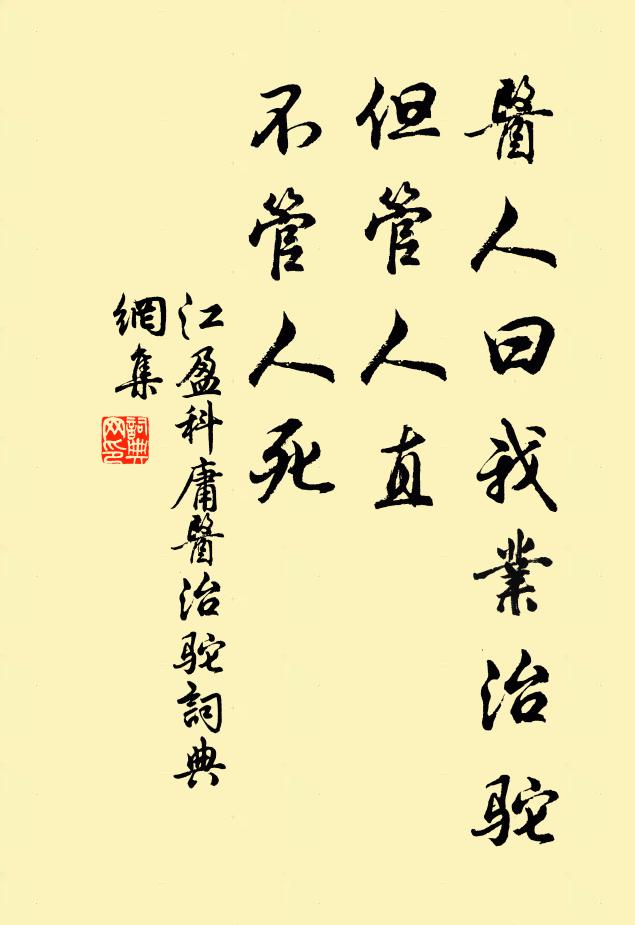 醫人曰我業治駝
但管人直
不管人死
江盈科庸醫治駝詞典
網集
詞典
网印